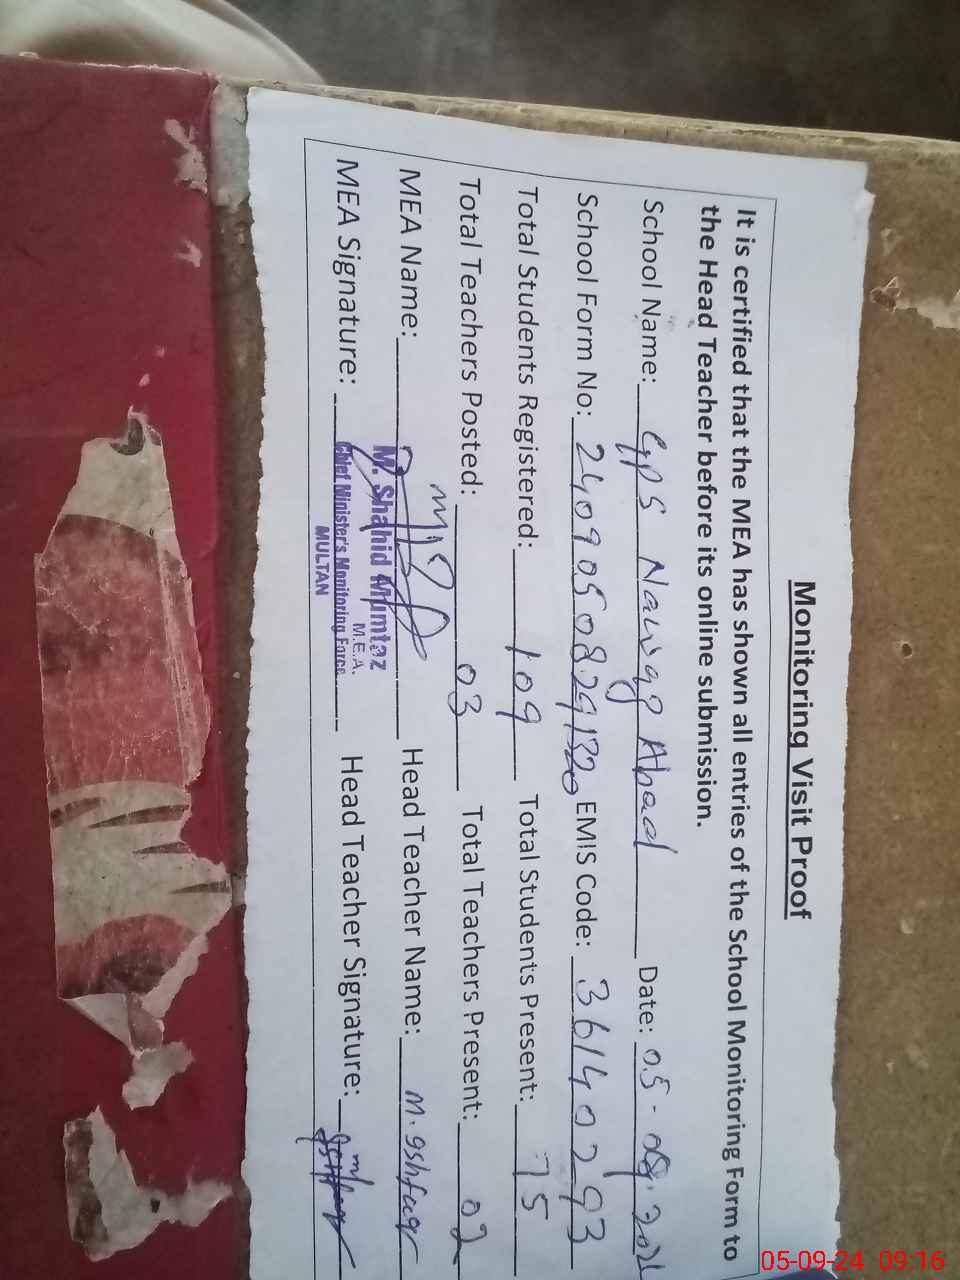 Monitoring Visit Proof
It is certified that the MEA has shown all entries of the School Monitoring Form to
the Head Teacher before its online submission.
School Name: GPS Nawag Abad Date: 05-09-202
School Form No: 24090508291320 EMIS Code: 36140293
Total Students Registered: 109 Total Students Present: 75
Total Teachers Posted: 03 Total Teachers Present: 02
MEA Name: Head Teacher Name: M. Ashfaq
MEA Signature: Head Teacher Signature:
M. Shahid Mumtaz
M.E.A.
Chief Minister's Monitoring Force
MULTAN
05-09-24 09:16